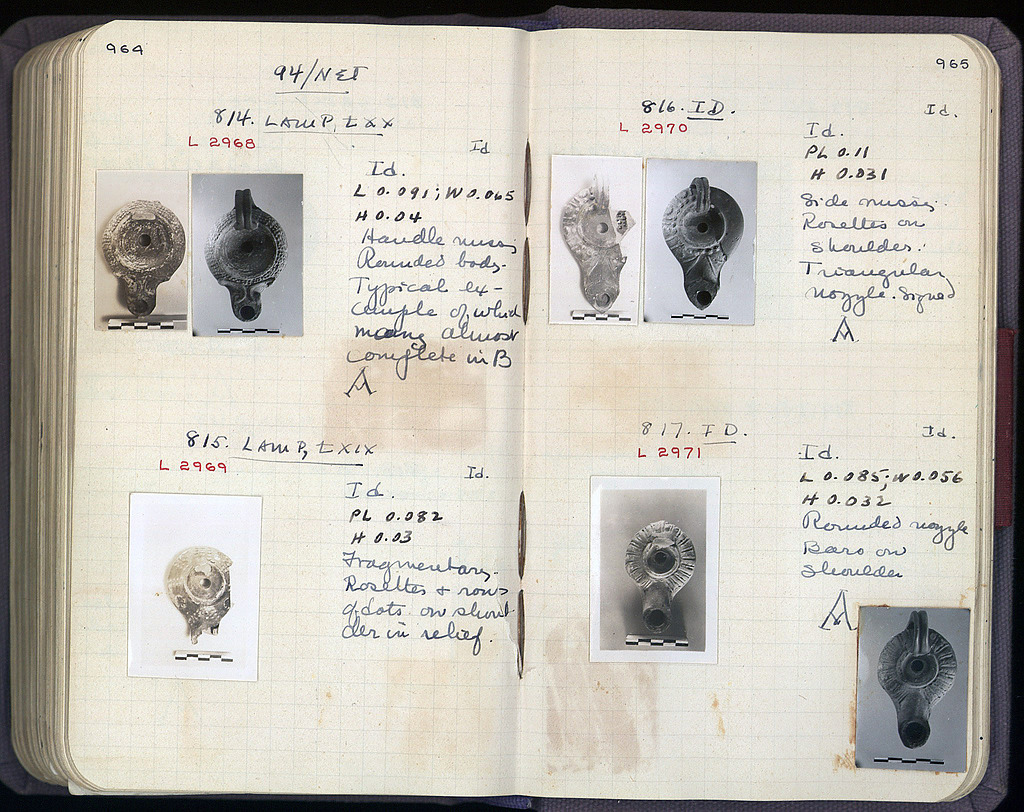 964
94/NET
814. LAMP, LXX
L 2968
Id
Id.
L 0.091; W 0.065
H 0.04
Handle missg
Rounded body.
Typical ex-
ample of which
many almost
complete in B
A
815. LAMP, LXIX
L 2969
Id.
Id.
PL 0.082
H 0.03
Fragmentary.
Rosettes & rows
of dots on shoul-
der in relief.
965
816. ID.
L 2970
Id.
Id.
PL 0.11
H 0.031
Side missg.
Rosettes on
shoulder.
Triangular
nozzle. Signed
A
817. ID.
L 2971
Id.
Id.
L 0.085; W 0.056
H 0.032
Rounded nozzle
Bars on
shoulder
A